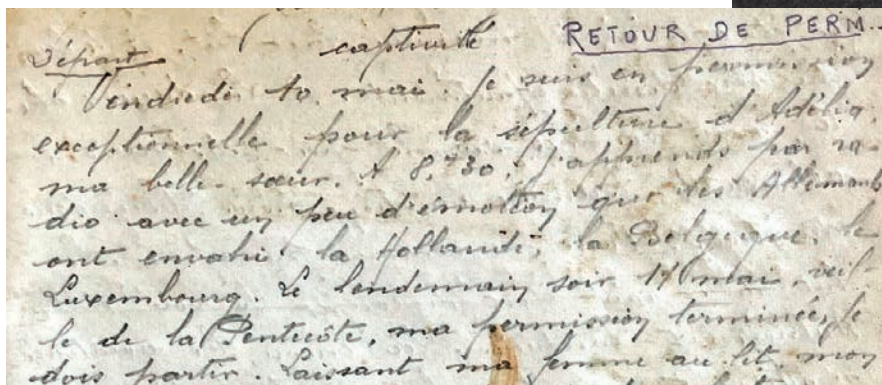 captivité RETOUR DE PERM..
Départ
Vendredi 10 mai. Je suis en permission
exceptionnelle pour la sépulture d'Adélia,
ma belle-sœur. A 8,30, j'apprends par ra-
dio avec un peu d'émotion que les Allemands
ont envahi la Hollande, la Belgique, le
Luxembourg. Le lendemain soir 11 mai, veil-
le de la Pentecôte, ma permission terminée, je
dois partir. Laissant ma femme au lit, mon